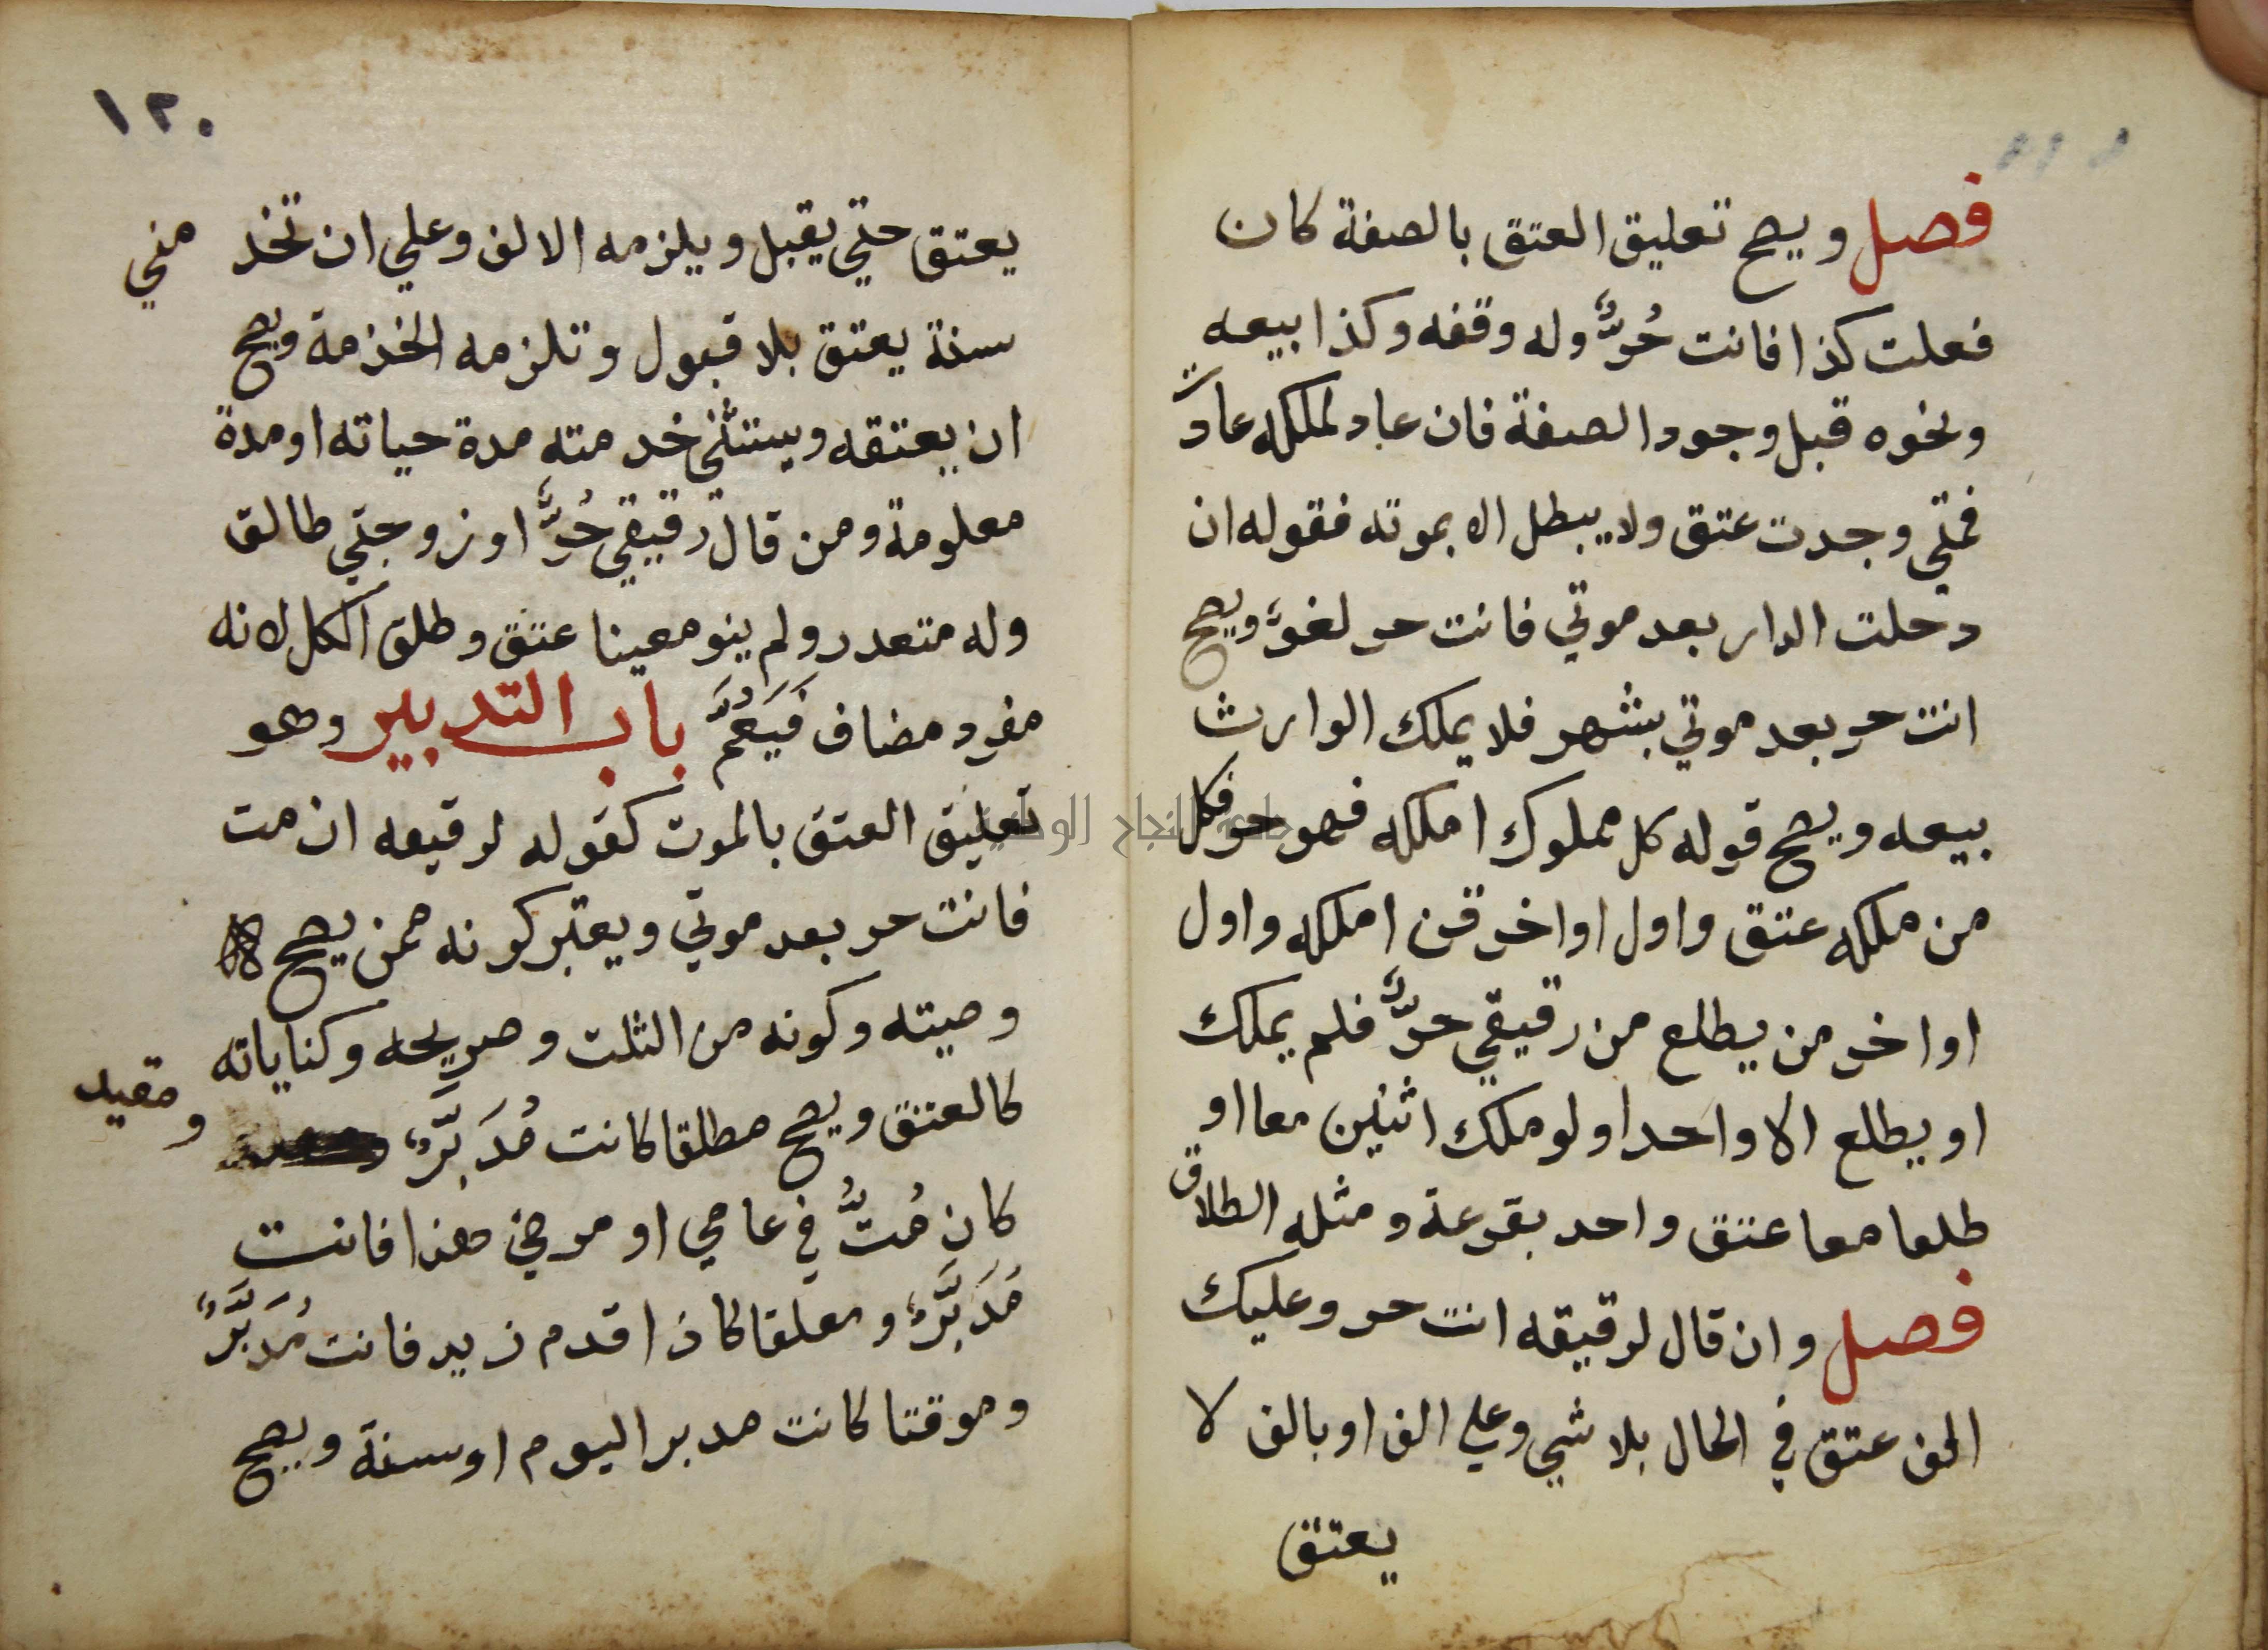 فصل ويصح تعليق العتق بالصفة كان
فعلت كذا فانت حُرٌّ وله وقفه وكذا بيعه
ونحوه قبل وجود الصفة فان عاد لملكه عادت
فمتي وجدت عتق ولا يبطل الا بموته فقوله ان
دخلت الدار بعد موتي فانت حر لغوٌ ويصح
انت حر بعد موتي بشهر فلا يملك الوارث
بيعه ويصح قوله كل مملوك املكه فهو حر فكل
من ملكه عتق واول او اخر قن املكه واول
او اخر من يطلع من رقيقي حرٌّ فلم يملك
او يطلع الا واحدا ولو ملك اثنين معا او
طلعا معا عتق واحد بقرعة ومثله الطلاق
فصل وان قال لرقيقه انت حر وعليك
الف عتق في الحال بلا شي وعلي الف او بالف لا
يعتق
١٢٠
يعتق حتي يقبل ويلزمه الالف وعلي ان تخد مني
سنة يعتق بلا قبول وتلزمه الخذمة ويصح
ان يعتقه ويستثني خدمته مدة حياته او مدة
معلومة ومن قال رقيقي حُرٌّ او زوجتي طالق
وله متعدد ولم ينو معينا عتق وطلق الكل لانه
مفرد مضاف فَيَعُمَّ باب التدبير وهو
تعليق العتق بالموت كقوله لرقيعه ان مت
فانت حر بعد موتي ويعتبر كونه ممن يصح
وصيته وكونه من الثلث وصريحه وكناياته
كالعتق ويصح مطلقا كانت مُدَبَّرٌ ومقيد
كان مُتُّ في عامي او مرضي هذا فانت
مُدَبَّرٌ ومعلقا كاذا قدم زيد فانت مُدَبَّرٌ
وموقتا كانت مدبر اليوم او سنة ويصح
جامعة النجاح الوطنية